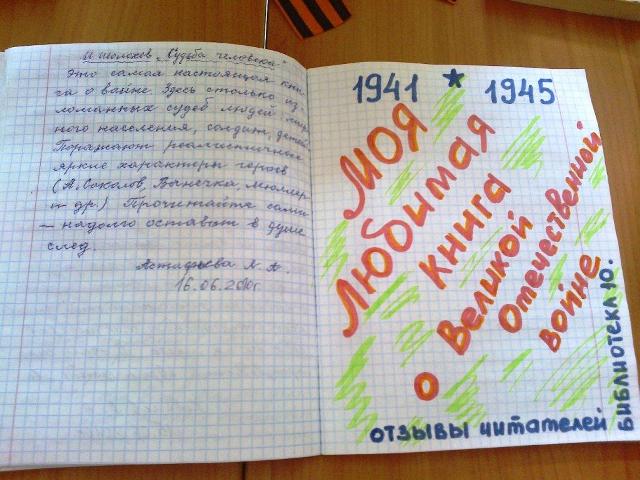 М. Шолохов „Судьба человека"
Это самая настоящая кни-
га о войне. Здесь столько из-
ломанных судеб людей: мир-
ного населения, солдат, детей.
Поражают реалистичные
яркие характеры героев
(А. Соколов, Ванечка, Мюллер
и др.) Прочитайте сами
– надолго оставит в душе
след.
Астафьева Л. А.
16.06.2010г
1941 ★ 1945
Моя
Любимая
книга
о Великой
Отечественной
войне
отзывы читателей
Библиотека 10.